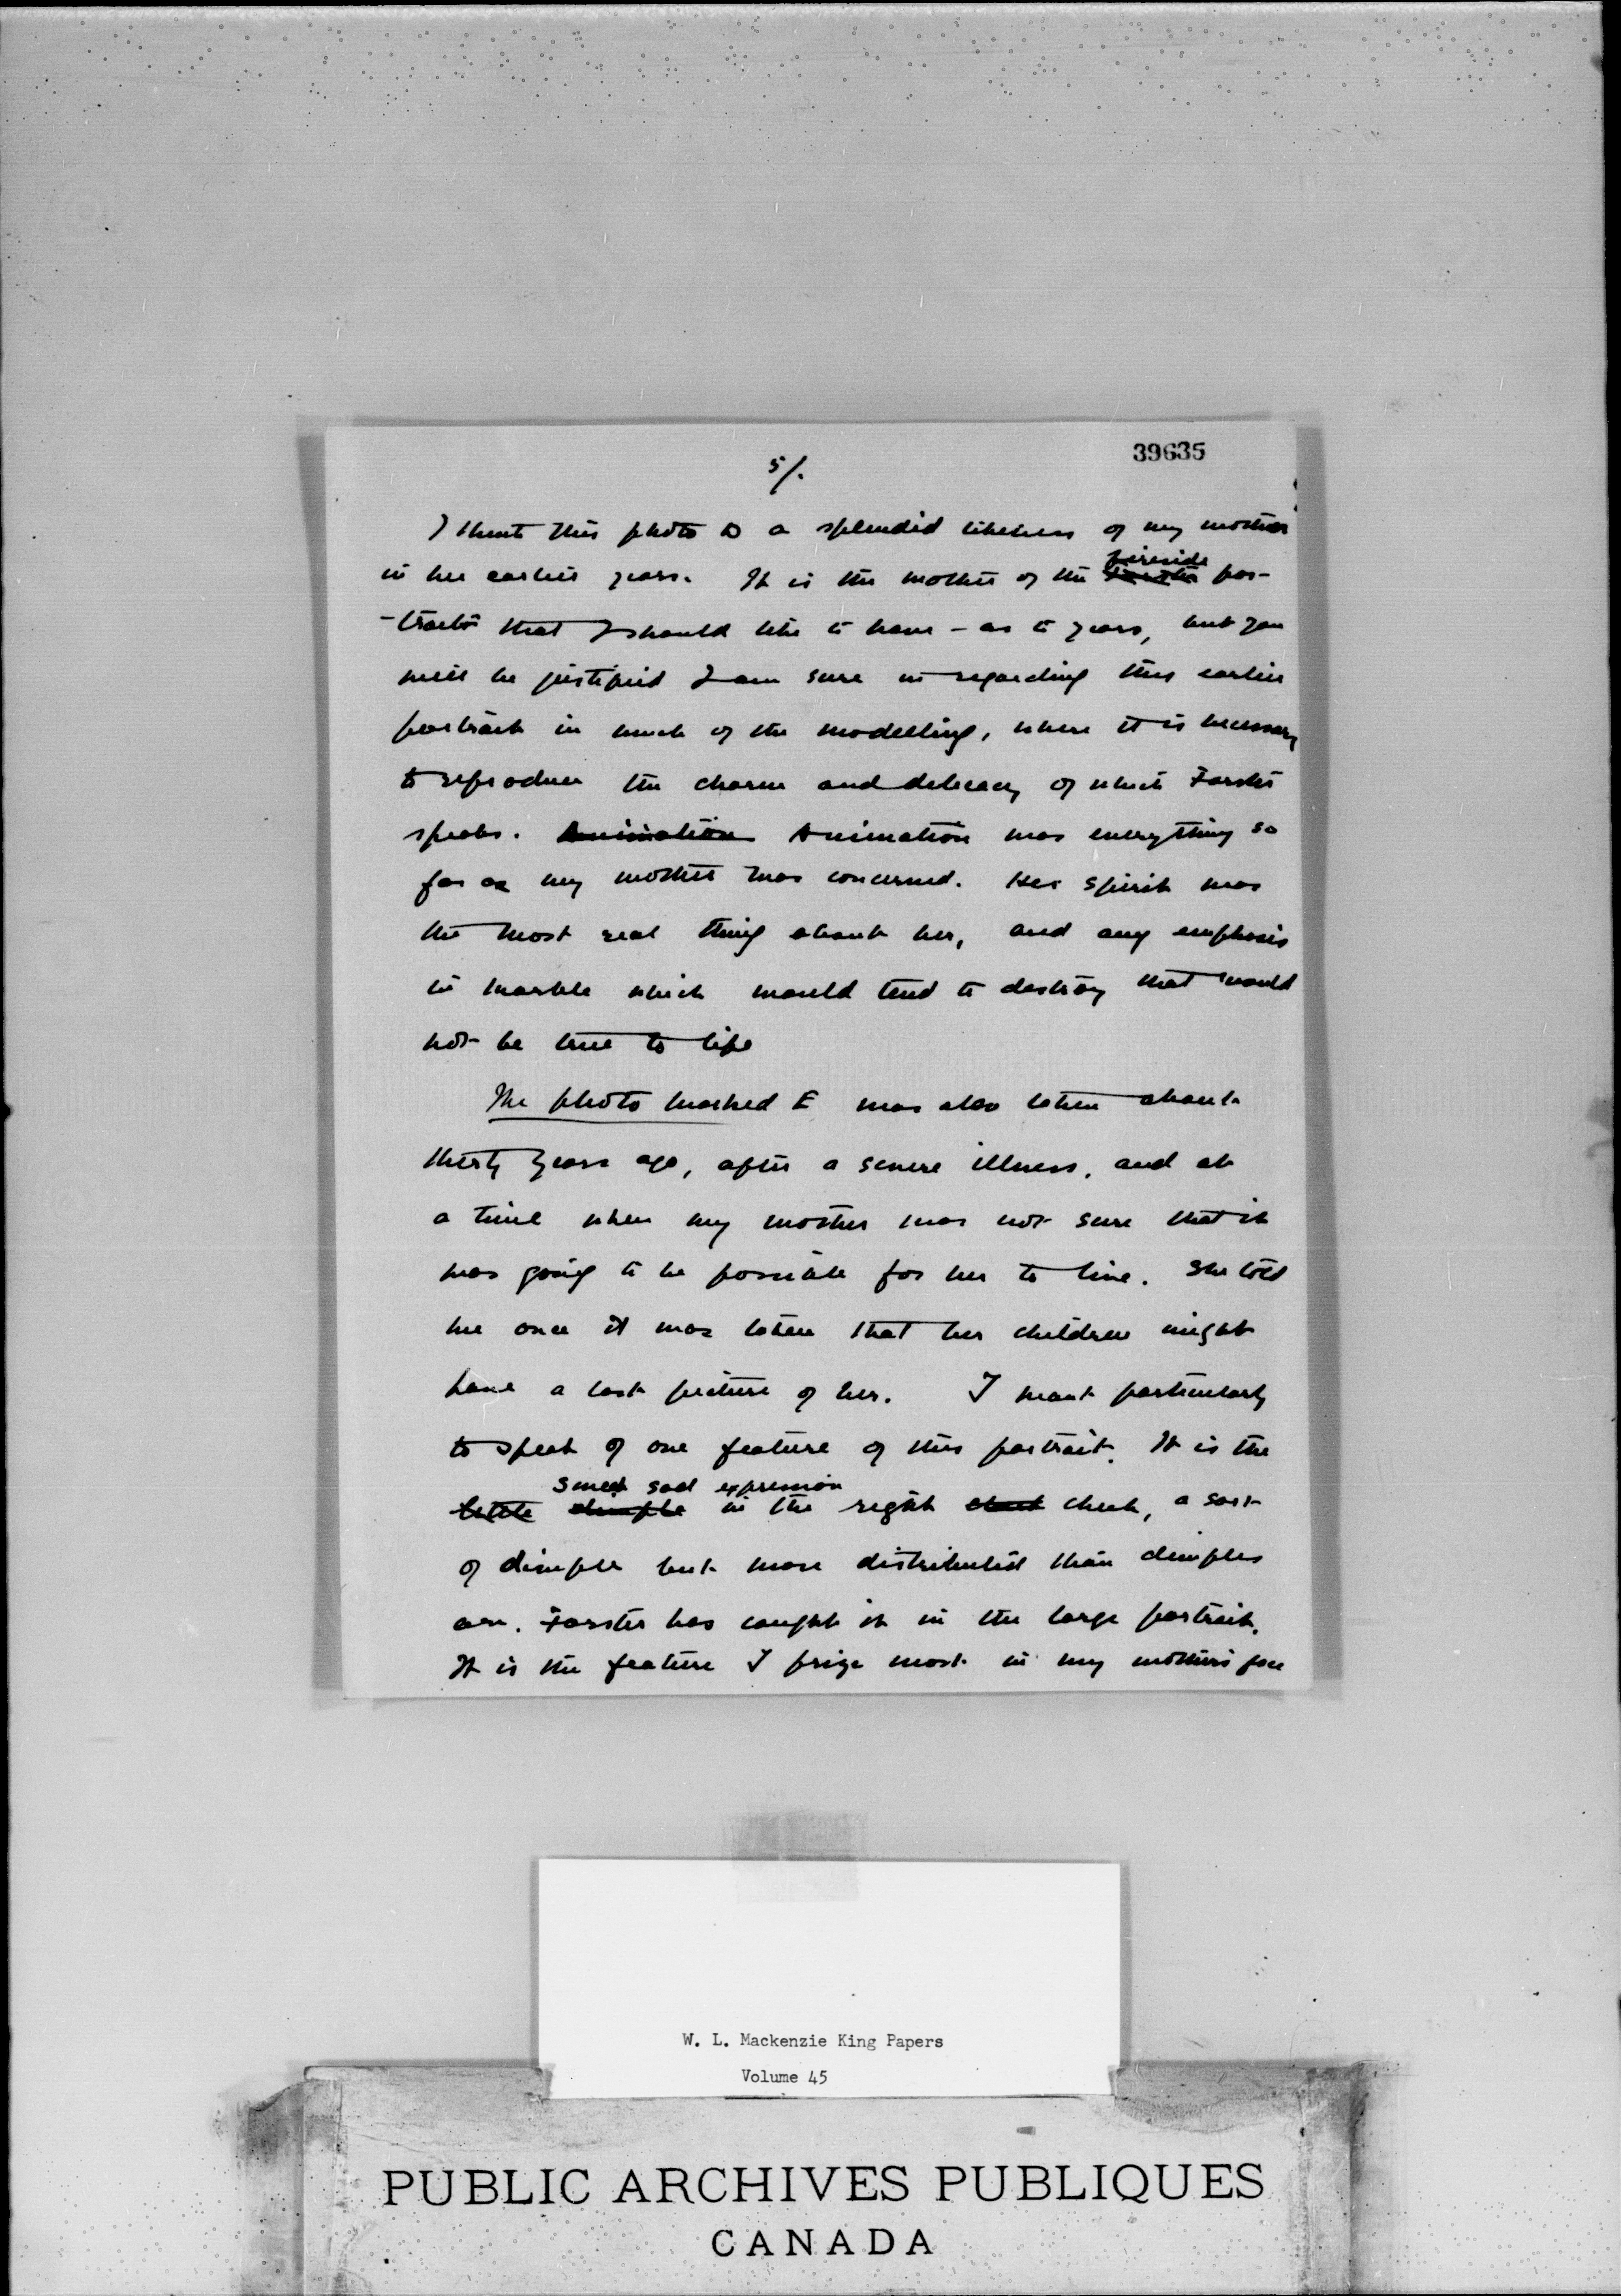 39635
5/.
I think this photo D a splendid likeness of my mother
in her earlier years. It is the mother of the fireside por-
-traits that I should like to have - as to years, but you
will be justified I am sure in regarding this earlier
portrait in much of the modelling, where it is necessary
to reproduce the charm and delicacy of which Forster
speaks. Animation Animation was everything so
far as my mother was concerned. Her spirit was
the most real thing about her, and any emphasis
in marble which would tend to destroy that would
not be true to life
The photo marked E was also taken about
thirty years ago, after a severe illness, and at
a time when my mother was not sure that it
was going to be possible for her to live. She told
me once it was taken that her children might
have a last picture of her. I want particularly
to speak of one feature of this portrait. It is the
sweet sad expression
little dimple in the right cheek, a sort
of dimple but more distributed than dimples
are. Forster has caught it in the large portrait.
It is the feature I prize most in my mother's face
W. L. Mackenzie King Papers
Volume 45
PUBLIC ARCHIVES PUBLIQUES
CANADA